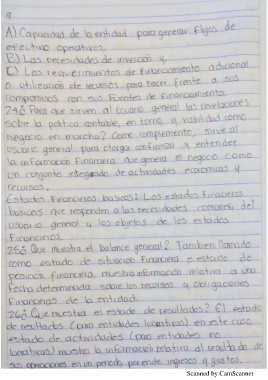 A) Capacidad de la entidad para generar flujos de
efectivo operativos.
B) Las necesidades de inversión y
C) Los requerimientos de financiamiento adicional
o utilización de recursos para hacer frente a sus
compromisos con sus fuentes de financiamiento.
Para que sirven al usuario general las revelaciones
sobre la politica contable, en torno a viabilidad como
negocio en marcha? Como complemento, sirve al
usuario general para otorgar confianza y entender
la información financiera que genera el negocio como
un conjunto integrado de actividades económicas y
recursos.
Estados financieros basicos: Los estados financieros
basicos que responden a las necesidades comunes del
usuario general y los objetos de los estados
Financieros.
25¿ Que muestra el balance general? Tambien llamado
como estado de situación financiera o estado de
posición financiera, muestra información relativa a una
fecha determinada sobre los recursos y obligaciones
financieras de la entidad.
26¿ Que muestra el estado de resultados? El estado
de resultados (para entidades lucrativas) en este caso
estado de actividades (para entidades no
lucrativas) muestra la información relativa al resultado de
sus operaciones en un periodo, por ende ingresos y gastos.
Scanned by CamScanner